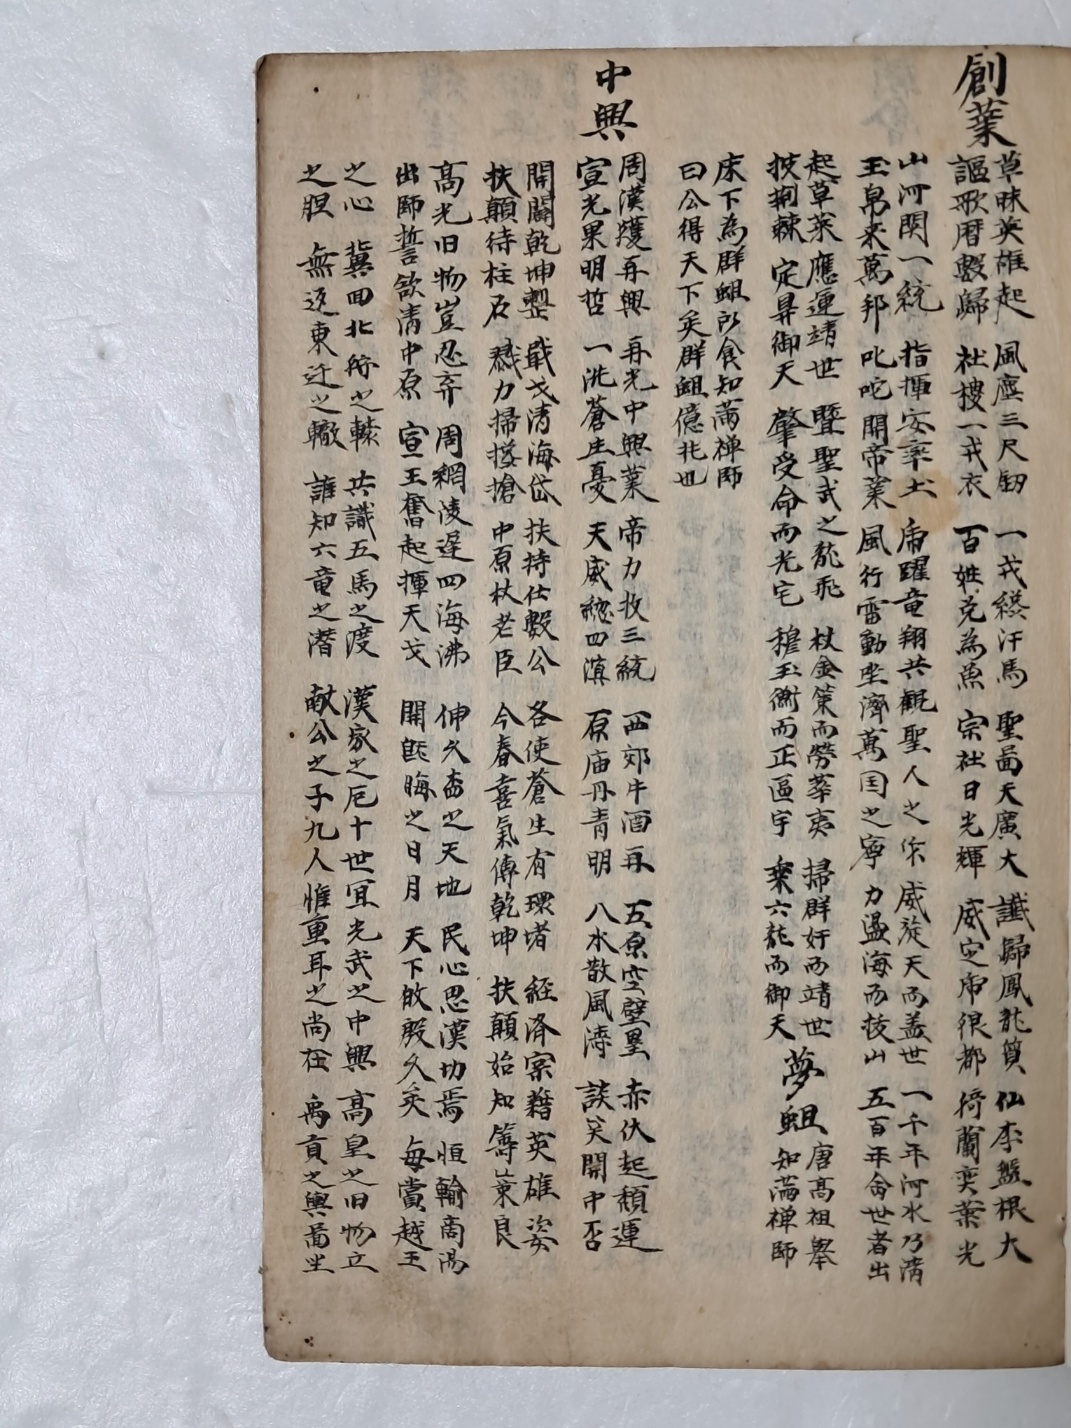 創業
草昧英雄起 風塵三尺釰 一戎緫汗馬 聖啚天廣大 讖歸鳳龍質 仙李盤根大
謳歌曆數歸 社稷一戎衣 百姓免為魚 宗社日光輝 威定虎狼都 猗蘭奕葉光
山河関一統 指揮安率土 虎躍竜翔共覩聖人之作 威旋天而盖世 一千年河水乃清
玉帛来萬邦 叱咤開帝業 風行雷動坐濟萬囯之寧 力盪海而拔山 五百年命世者出
起草莱應運靖世 曁聖武之龍飛 杖金策而勞莘夷 掃群奸而靖世
披荆棘定鼎御天 肇受命而光宅 握玉衡而正區宇 乘六龍而御天
夢蛆
唐高祖舉
知滿禅師
床下為群蛆所食知滿禅師
曰公得天下矣群蛆億兆也
中興
周漢獲再興 再光中興業 帝力收三統 西郊牛酒再 五原空壁壘 赤伏起頹運
宣光果明哲 一洗蒼生憂 天威緫四溟 原庙丹青明 八水散風濤 談笑開中否
開闢乾坤整 戢戈清海岱 扶持仕數公 各使蒼生有環堵 経済寀藉英雄姿
扶顛待柱石 戮力掃搀搶 中原杖老臣 今春喜氣傳乾坤 扶顛始知籌策良
髙光旧物豈忍弃 周綱陵遅四海沸 伸久盉之天地 民心思漢切焉 恒輸商湯
出師誓欲清中原 宣王奮起揮天戈 開旣晦之日月 天下政殷久矣 每賞越王
之心 冀回北狩之轅 共識五馬之渡 漢家之厄十世冝光武之中興 高皇之旧物立
之胆 無返東迁之轍 誰知六竜之潛 献公之子九人惟重耳之尚在 禹貢之輿啚坐